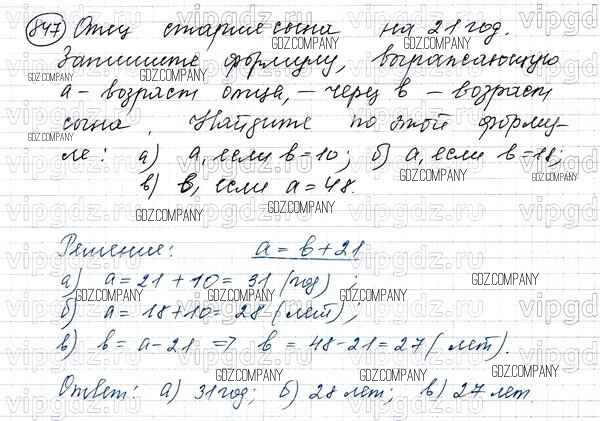 847) Отец старше сына на 21 год.
Запишите формулу, выражающую
a - возраст отца, - через b - возраст
сына. Найдите по этой форму-
ле: а) a, если b=10; б) a, если b=18;
в) b, если a=48.
Решение: a = b+21
а) a = 21 + 10 = 31 (год);
б) a = 18+10 = 28 (лет);
в) b = a-21 => b = 48-21 = 27 (лет).
Ответ: а) 31 год; б) 28 лет; в) 27 лет.
GDZ.COMPANY
vipgdz.ru